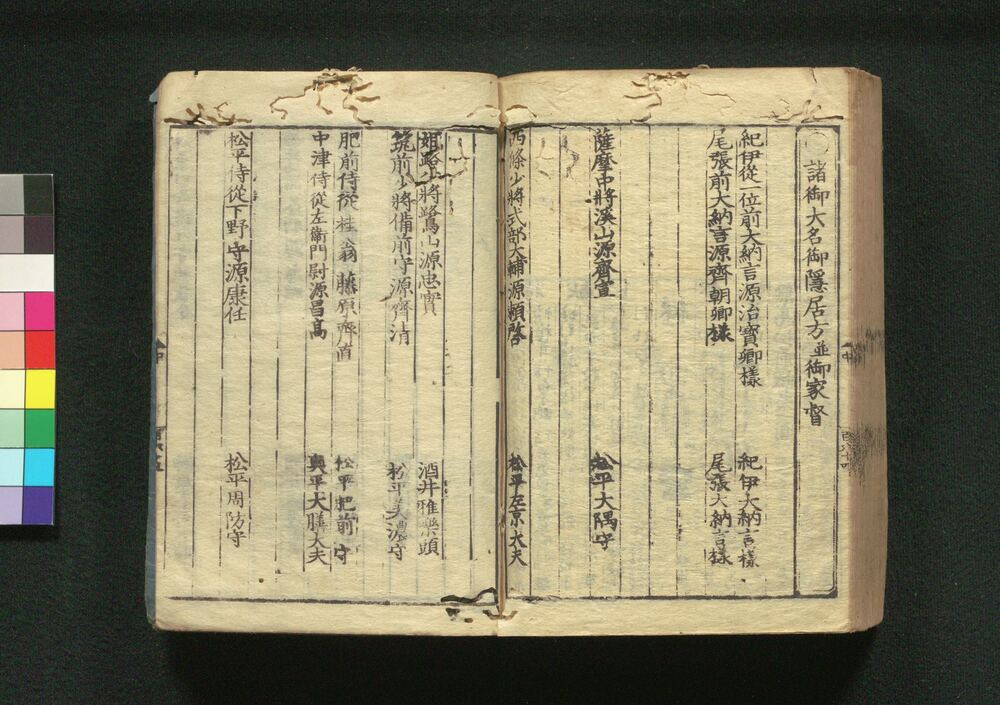 諸御大名御隱居方並御家督
紀伊從一位前大納言源治寶卿樣　紀伊大納言樣
尾張前大納言源齊朝卿樣　尾張大納言樣
薩摩中將溪山源齊宣　松平大隅守
西條少將式部大輔源賴啓　松平左京大夫
姫路少將鷺山源忠實　酒井雅樂頭
筑前少將備前守源齊清　松平美濃守
肥前侍從桂翁藤原齊直　松平肥前守
中津侍從左衛門尉源昌高　奥平大膳大夫
松平侍從下野守源康任　松平周防守
中
中